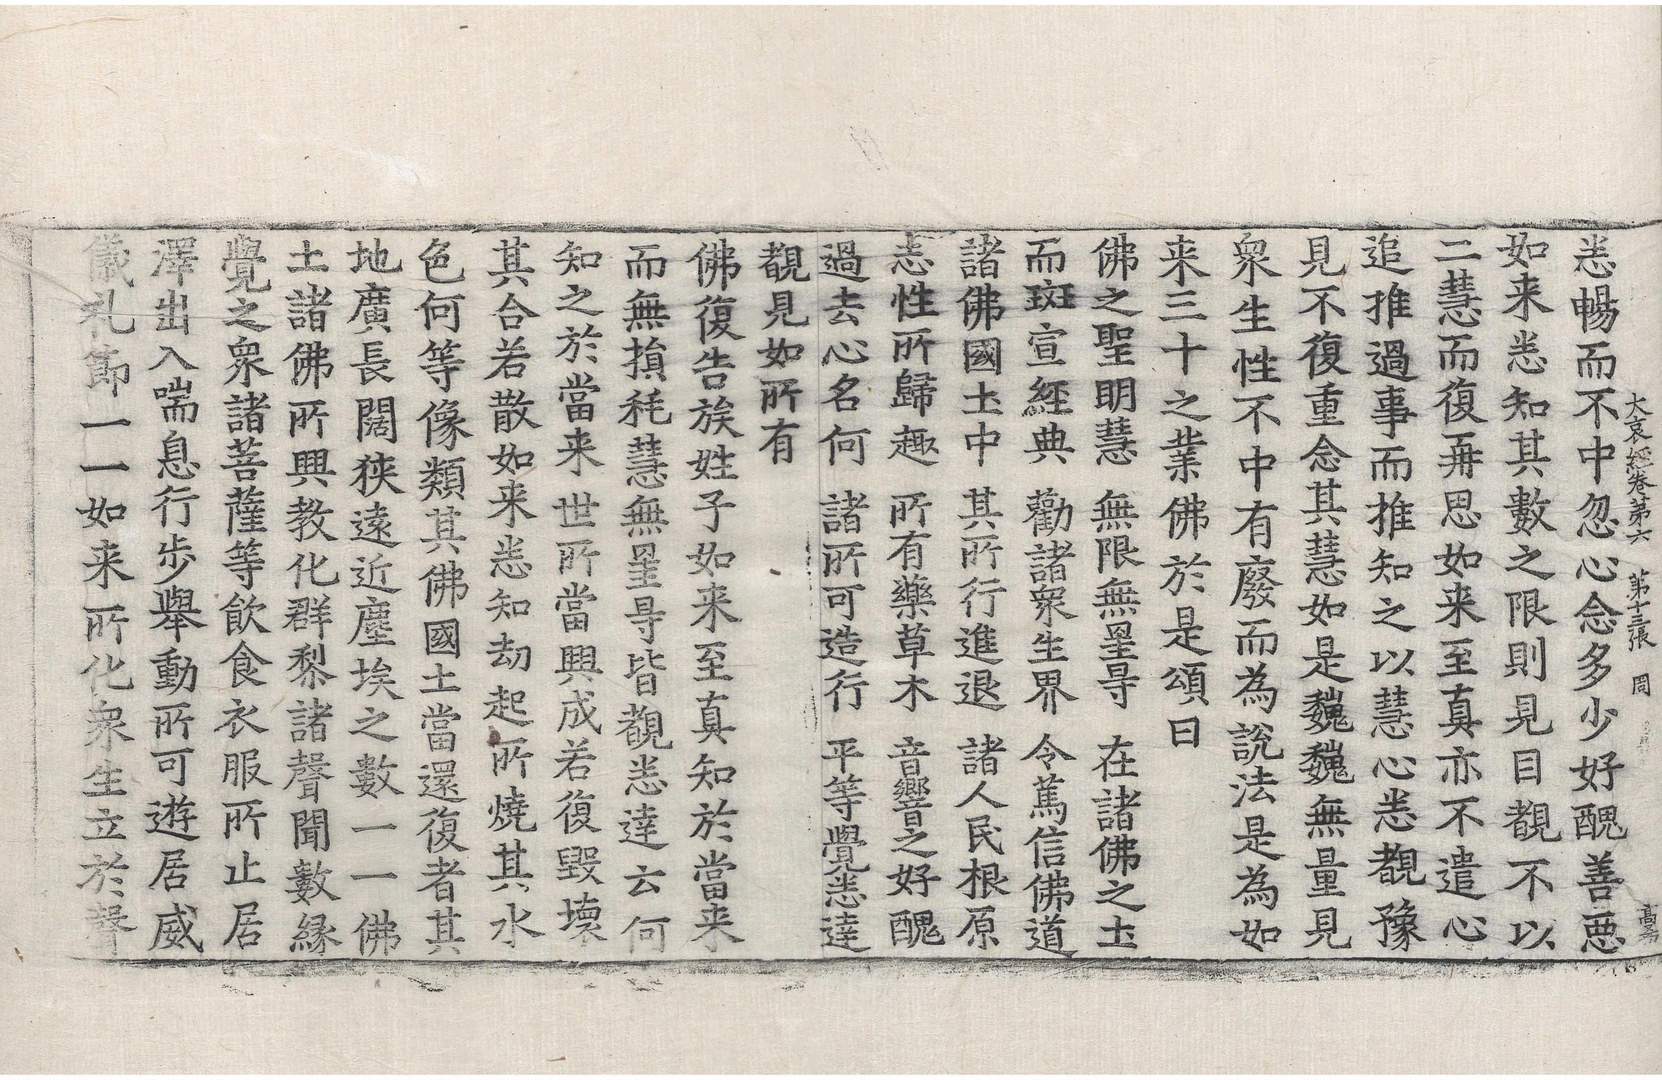 大哀經卷第六 第十三張 周
悉暢而不中忽心念多少好醜善惡
如来悉知其數之限則見目覩不以
二慧而復再思如来至真亦不遣心
追推過事而推知之以慧心悉覩豫
見不復重念其慧如是魏魏無量見
衆生性不中有廢而為說法是為如
来三十之業佛於是頌曰
佛之聖明慧 無限無罣㝵 在諸佛之土
而班宣經典 勸諸衆生界 令篤信佛道
諸佛國土中 其所行進退 諸人民根原
志性所歸趣 所有藥草木 音響之好醜
過去心名何 諸所可造行 平等覺悉達
覩見如所有
佛復告族姓子如来至真知於當来
而無損耗慧無罣㝵皆觀悉達云何
知之於當来世所當興成若復毀壞
其合若散如来悉知劫起所燒其水
色何等像類其佛國土當還復者其
地廣長闊狹遠近塵埃之數一一佛
土諸佛所興教化群黎諸聲聞數緣
覺之衆諸菩薩等飲食衣服所止居
澤出入喘息行步舉動所可遊居威
儀礼節一一如来所化衆生立於聲